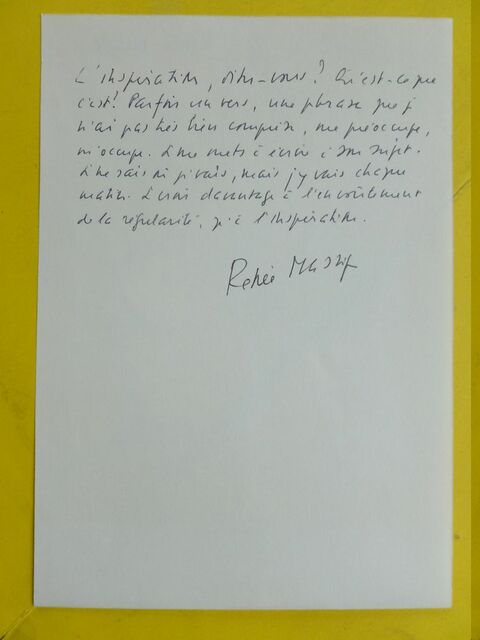 L'inspiration, dites-vous? Qu'est-ce que
c'est? Parfois un vers, une phrase que j
n'ai pas très bien comprise, me préoccupe,
m'occupe. Je me mets à écrire à son sujet.
Je ne sais où je vais, mais j'y vais chaque
matin. Je crois davantage à l'envoûtement
de la régularité, qu'à l'inspiration.
Renée Massip